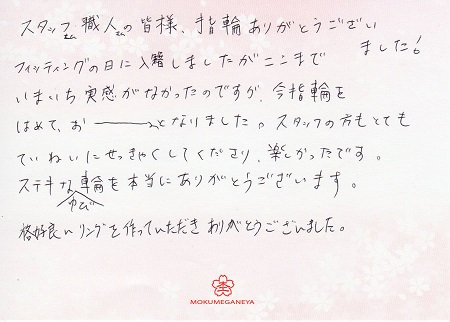 スタッフ、職人の皆様、指輪ありがとうござい
ました!
フィッティングの日に入籍しましたがここまで
いまいち実感がなかったのですが、今指輪を
はめて、お――――っとなりました。スタッフの方もとても
ていねいにせっきゃくしてくださり、楽しかったです。
ステキな輪を本当にありがとうございます。
ゆび
格好良いリングを作っていただきありがとうございました。
MOKUMEGANEYA